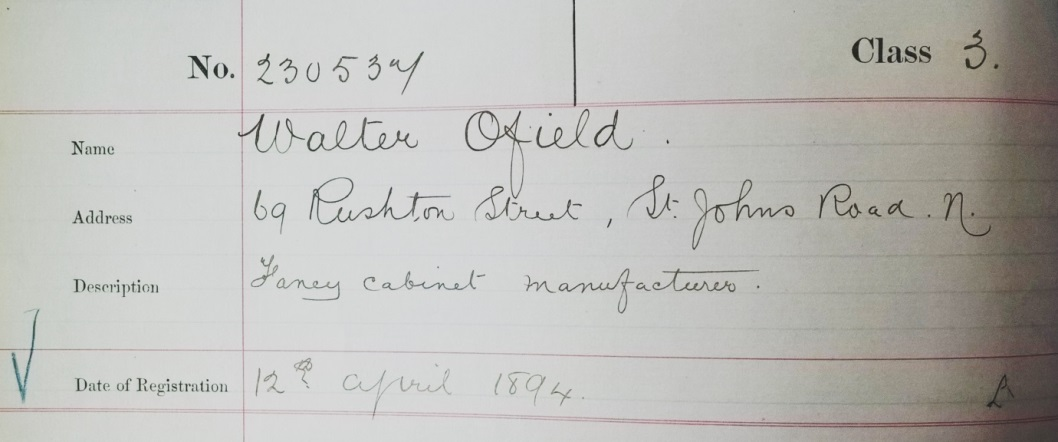 No. 230534 Class 3.
Name Walter Ofield.
Address 69 Rushton Street, St. Johns Road. N.
Description Fancy cabinet manufacturer.
Date of Registration 12th April 1894.